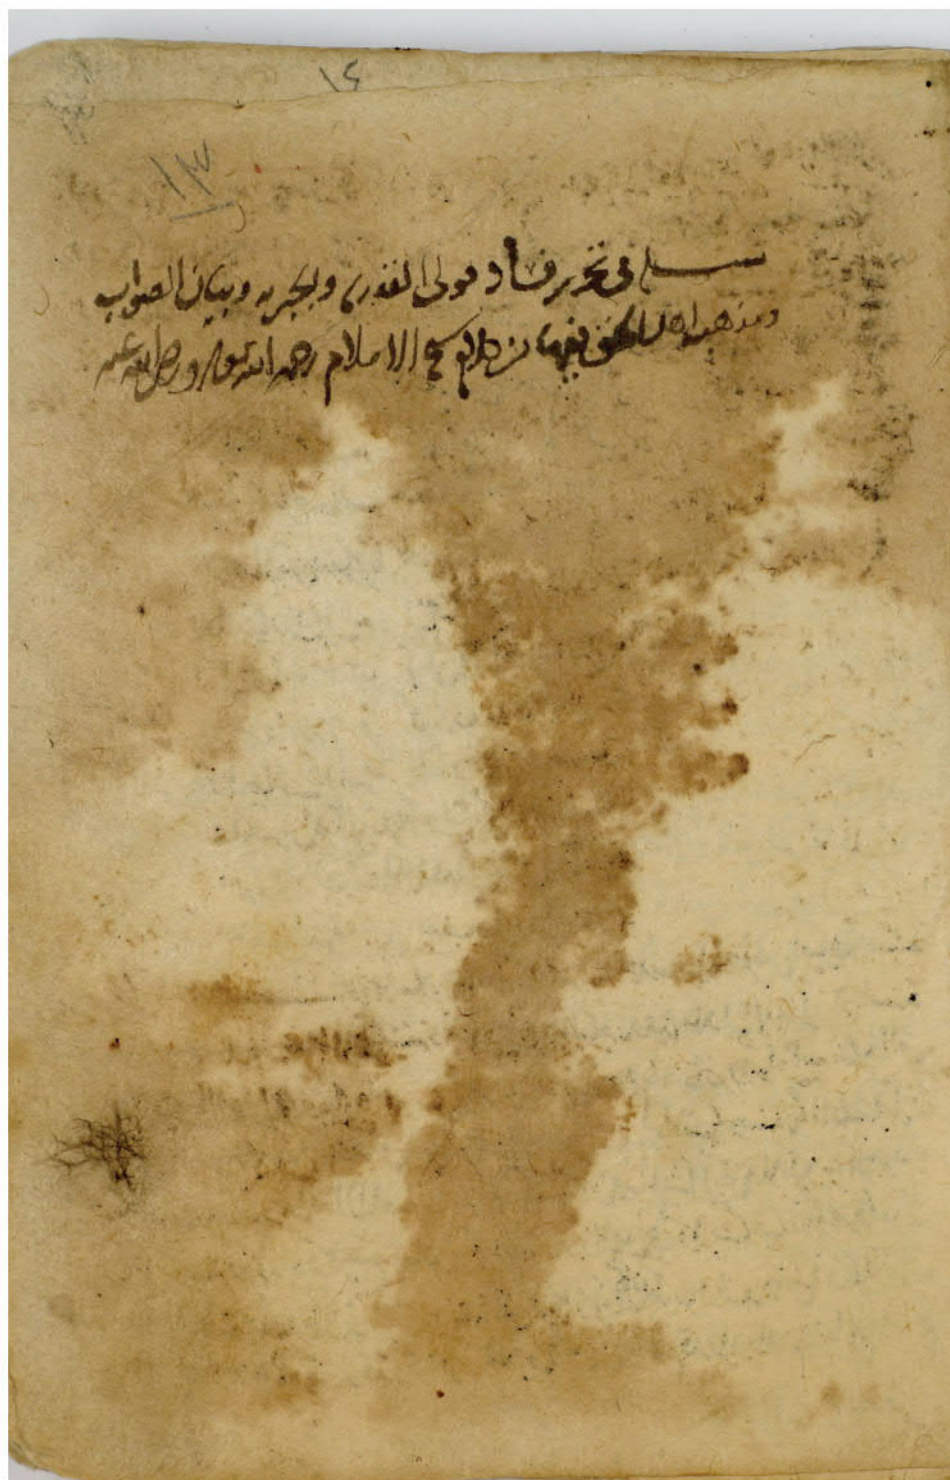 ١٤
١٣
مسئلة في تحرير فساد قولي القدرية والجبرية وبيان الصواب
ومذهب اهل الحق فيهما من كلام شيخ الاسلام رحمه الله تعالى ورضي الله عنه